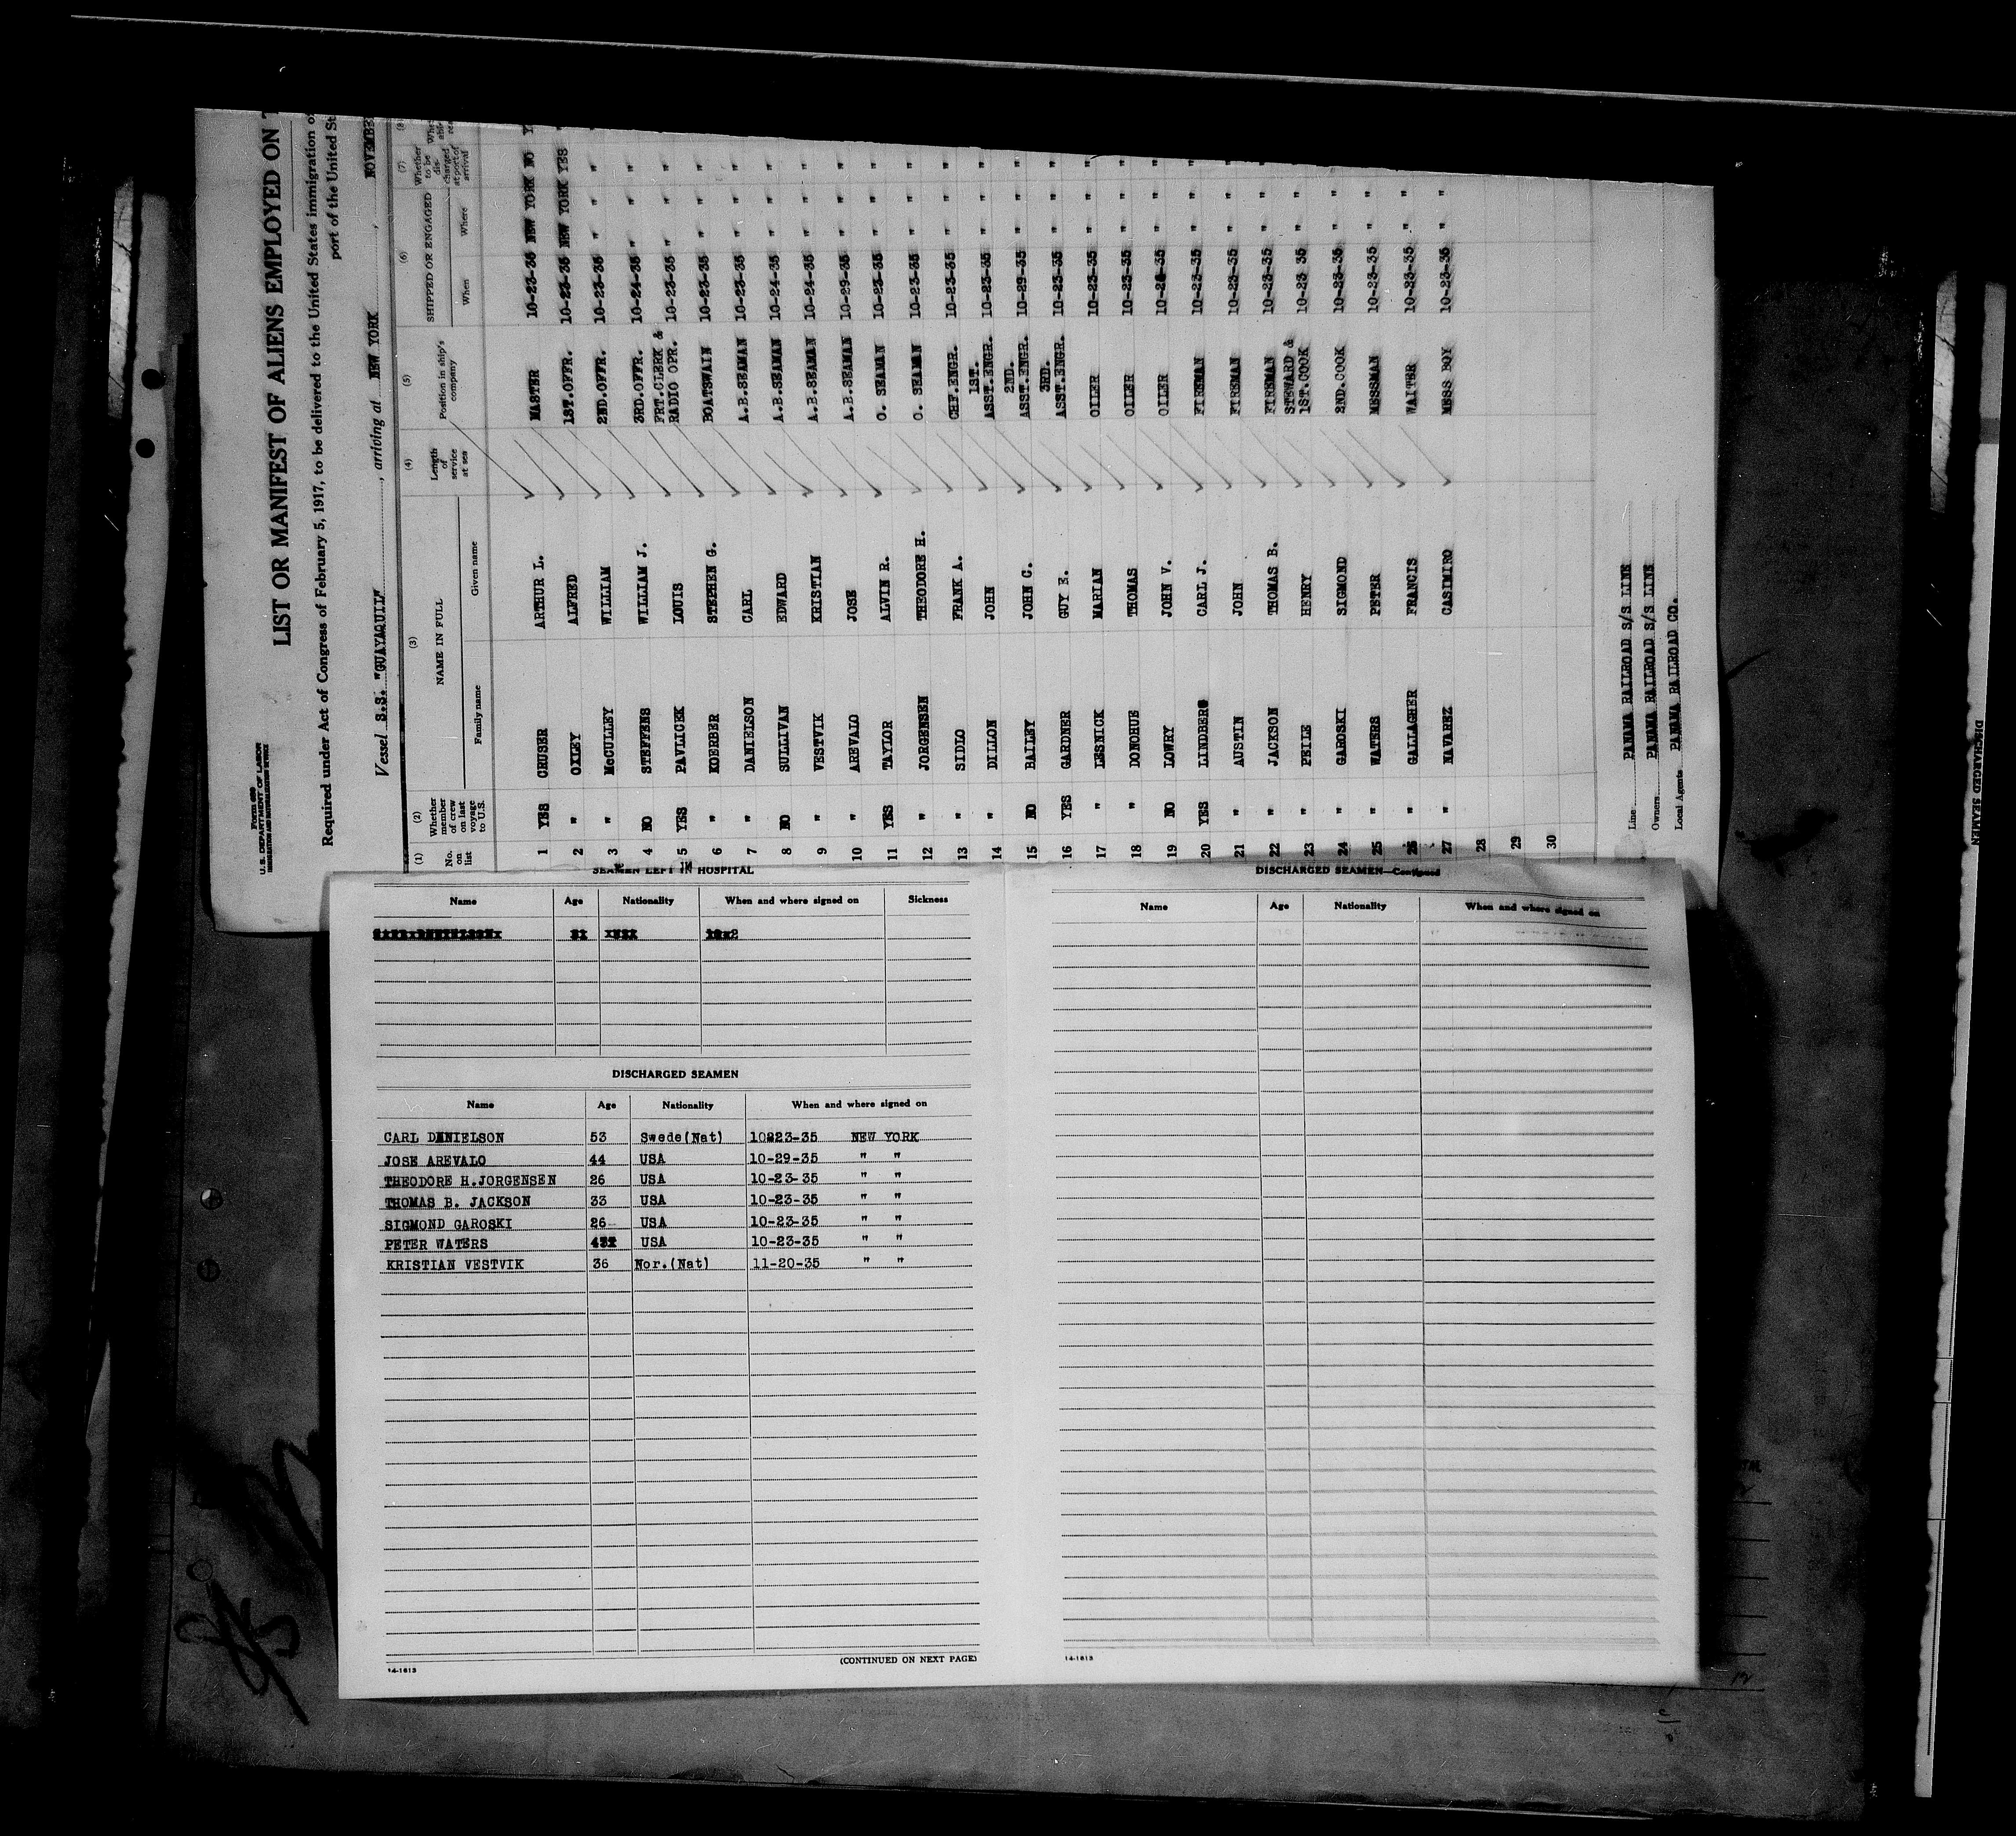 Form 680
U.S. DEPARTMENT OF LABOR
LIST OR MANIFEST OF ALIENS EMPLOYED ON
Required under Act of Congress of February 5, 1917, to be delivered to the United States immigration
port of the United St
Vessel S.S. "GUAYAQUIL", arriving at NEW YORK, NOVEMBE
(1) (2) (3) (4) (5) (6) (7) (8)
No. on list Whether member of crew on last voyage to U.S. NAME IN FULL Family name Given name Length of service at sea Position in ship's company SHIPPED OR ENGAGED When Where Whether to be discharged at port of arrival
1 YES CRUSER ARTHUR L. MASTER 10-23-35 NEW YORK NO Y
2 " OXLEY ALFRED 1ST.OFFR. 10-23-35 NEW YORK YES "
3 " McCULLEY WILLIAM 2ND.OFFR. 10-23-35 " " "
4 NO STEFFENS WILLIAM J. 3RD.OFFR. 10-24-35 " " "
5 YES PAVLICEK LOUIS FRT.CLERK & RADIO OPR. 10-23-35 " " "
6 " KOERBER STEPHEN G. BOATSWAIN 10-23-35 " " "
7 " DANIELSON CARL A.B.SEAMAN 10-23-35 " " "
8 NO SULLIVAN EDWARD A.B.SEAMAN 10-24-35 " " "
9 " VESTVIK KRISTIAN A.B.SEAMAN 10-24-35 " " "
10 " AREVALO JOSE A.B.SEAMAN 10-29-35 " " "
11 YES TAYLOR ALVIN R. O. SEAMAN 10-23-35 " " "
12 " JORGENSEN THEODORE H. O. SEAMAN 10-23-35 " " "
13 " SIDLO FRANK A. CHF.ENGR. 10-23-35 " " "
14 " DILLON JOHN 1ST. ASST.ENGR. 10-23-35 " " "
15 NO BAILEY JOHN C. 2ND. ASST.ENGR. 10-29-35 " " "
16 YES GARDNER GUY E. 3RD. ASST.ENGR. 10-23-35 " " "
17 " LESNICK MARIAN OILER 10-23-35 " " "
18 " DONOHUE THOMAS OILER 10-23-35 " " "
19 NO LOWRY JOHN V. OILER " " "
20 YES LINDBERG CARL J. FIREMAN 10-23-35 " " "
21 " AUSTIN JOHN FIREMAN 10-23-35 " " "
22 " JACKSON THOMAS B. FIREMAN 10-23-35 " " "
23 " PEILE HENRY STEWARD & 1ST.COOK 10-23 35 " " "
24 " GAROSKI SIGMOND 2ND.COOK 10-23-35 " "
25 " WATERS PETER MESSMAN 10-23-35 " "
26 " GALLAGHER FRANCIS WAITER 10-23-35 " "
27 " NAVAREZ CASIMIRO MESS BOY 10-23-35 " "
28
29
30
Line PANAMA RAILROAD S/S LINE
Owners PANAMA RAILROAD S/S LINE
Local Agents PANAMA RAILROAD CO.
SEAMEN LEFT IN HOSPITAL
Name Age Nationality When and where signed on Sickness
DISCHARGED SEAMEN
Name Age Nationality When and where signed on
CARL DANIELSON 53 Swede(Nat) 10223-35 NEW YORK
JOSE AREVALO 44 USA 10-29-35 " "
THEODORE H.JORGENSEN 26 USA 10-23-35 " "
THOMAS B. JACKSON 33 USA 10-23-35 " "
SIGMOND GAROSKI 26 USA 10-23-35 " "
PETER WATERS USA 10-23-35 " "
KRISTIAN VESTVIK 36 Nor.(Nat) 11-20-35 " "
14-1613
(CONTINUED ON NEXT PAGE)
DISCHARGED SEAMEN—Continued
Name Age Nationality When and where signed on
14-1613
DISCHARGED SEAMEN